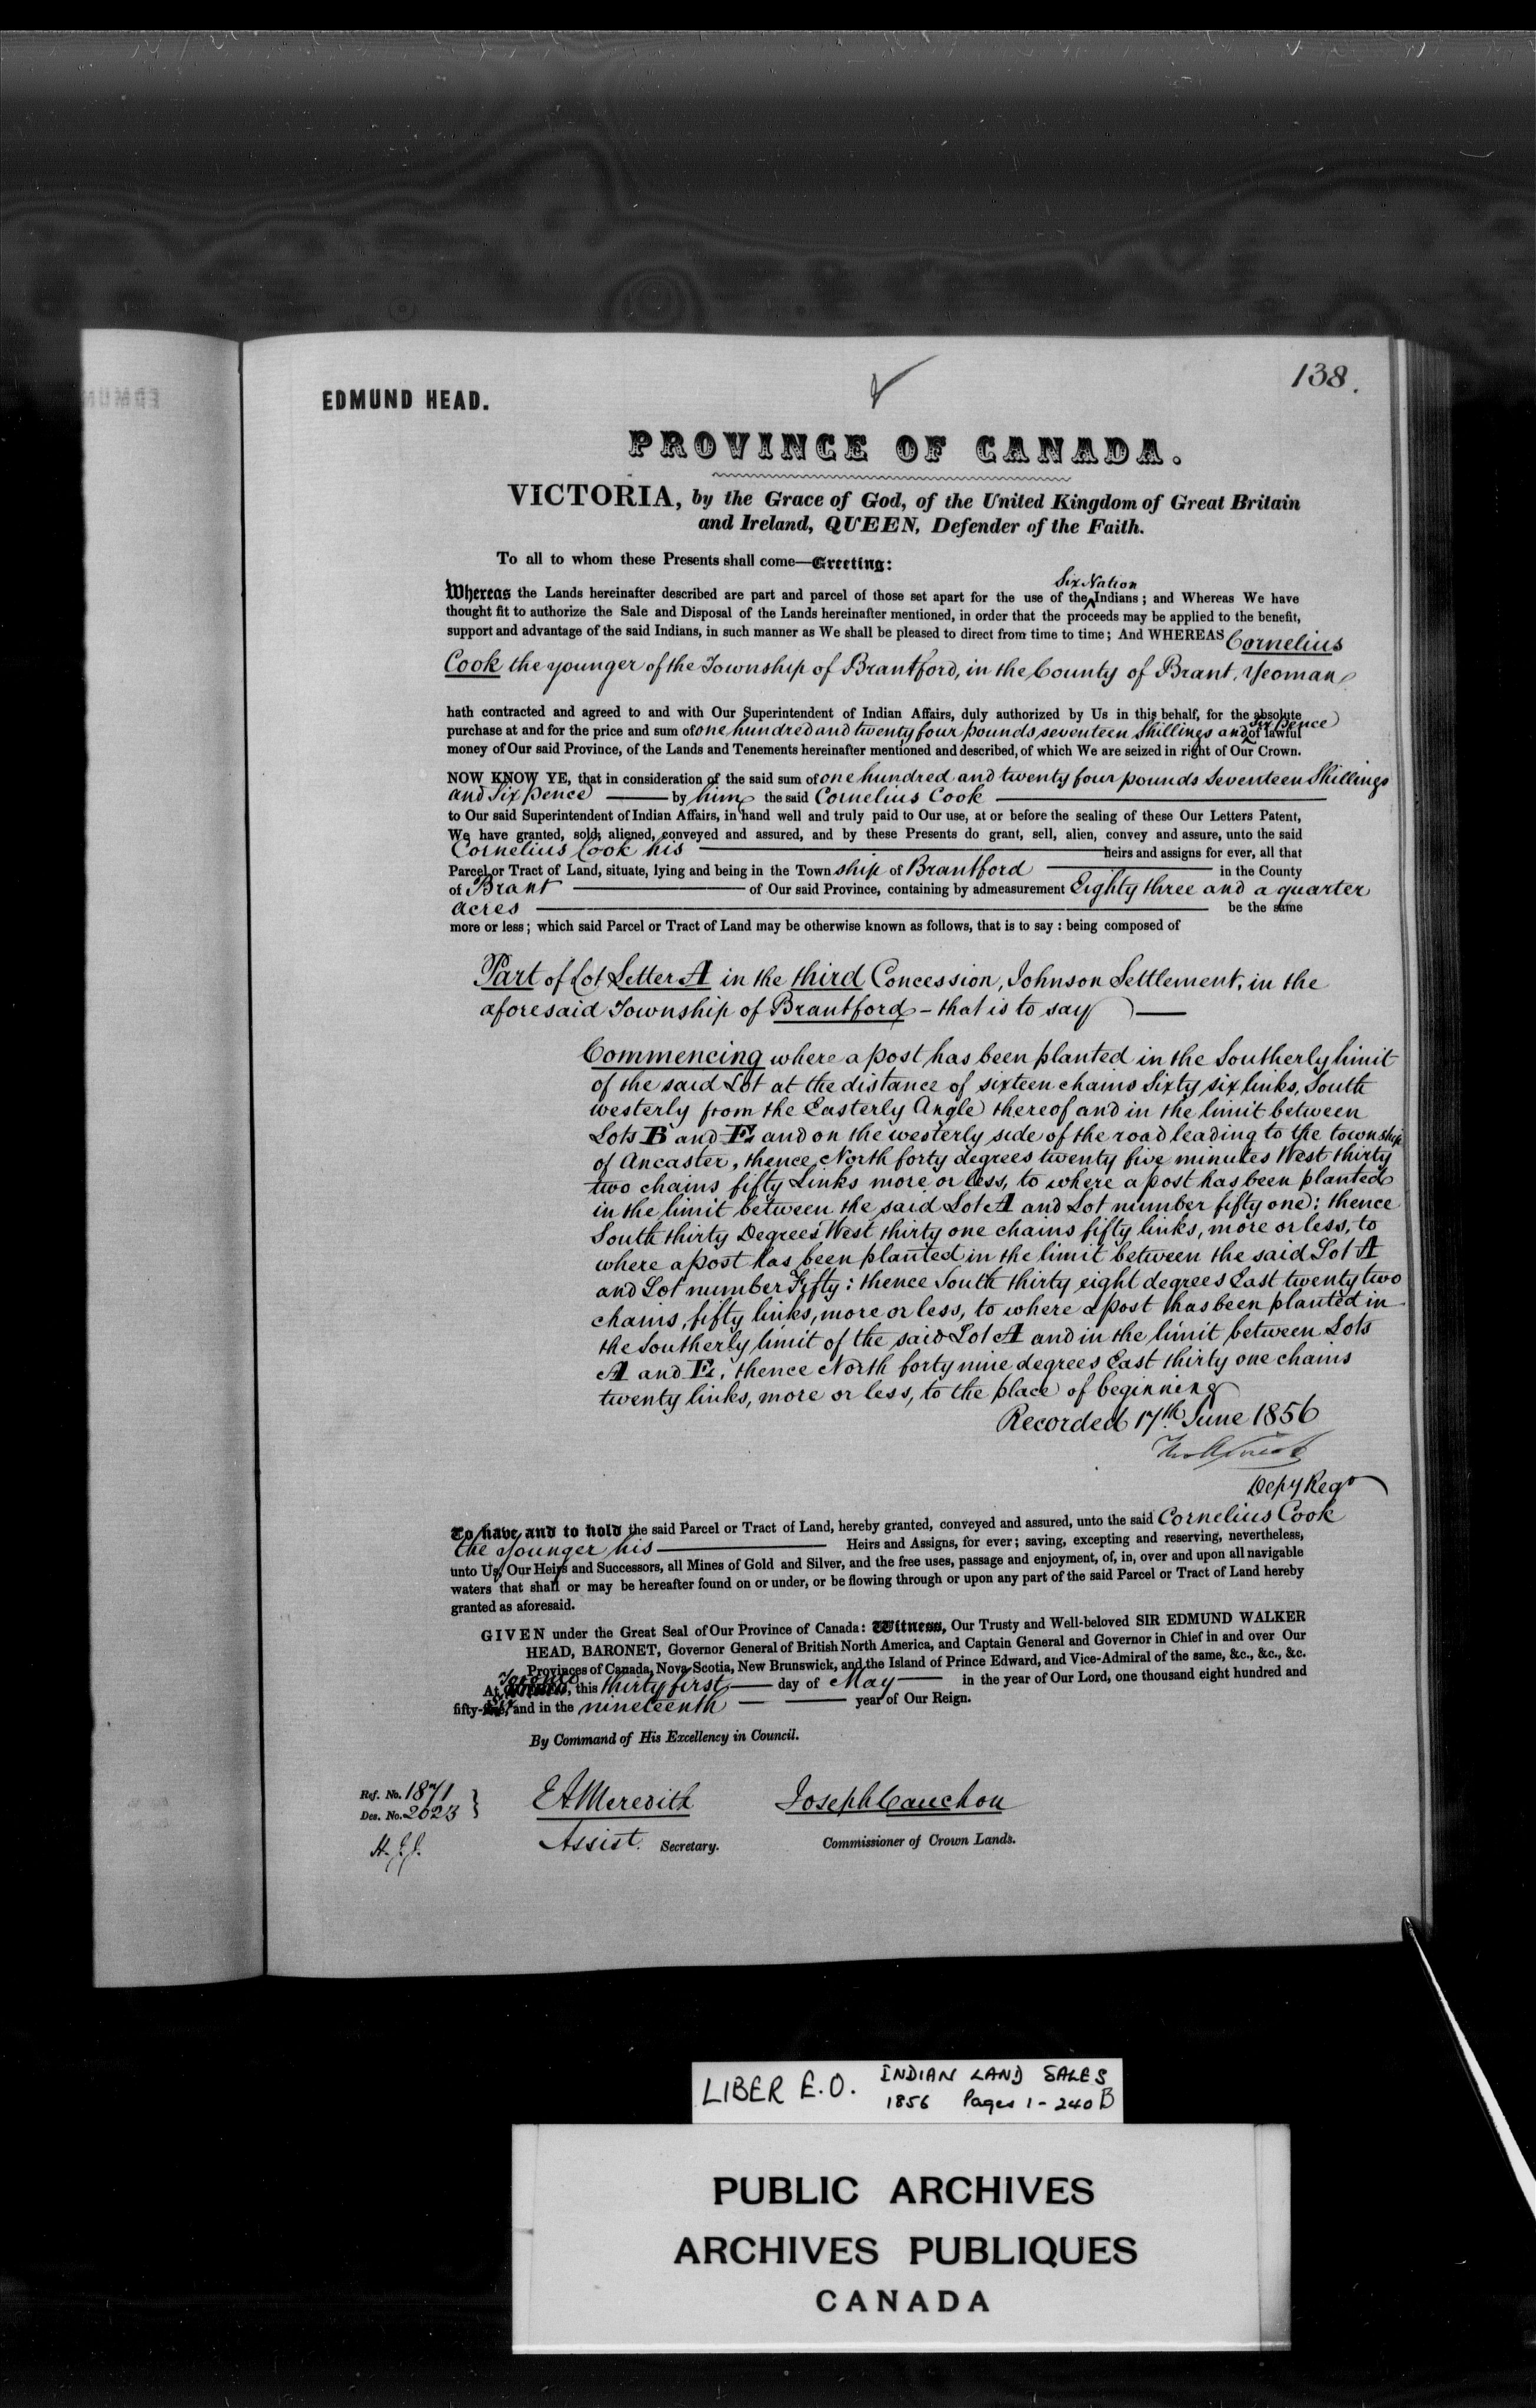 138.
EDMUND HEAD.
PROVINCE OF CANADA.
VICTORIA, by the Grace of God, of the United Kingdom of Great Britain
and Ireland, QUEEN, Defender of the Faith.
To all to whom these Presents shall come—Greeting:
Six Nation
Whereas the Lands hereinafter described are part and parcel of those set apart for the use of the Indians; and Whereas We have
thought fit to authorize the Sale and Disposal of the Lands hereinafter mentioned, in order that the proceeds may be applied to the benefit,
support and advantage of the said Indians, in such manner as We shall be pleased to direct from time to time; And WHEREAS Cornelius
Cook the younger of the Township of Brantford, in the County of Brant, Yeoman
hath contracted and agreed to and with Our Superintendent of Indian Affairs, duly authorized by Us in this behalf, for the absolute
six pence
purchase at and for the price and sum of one hundred and twenty four pounds seventeen Shillings and of lawful
money of Our said Province, of the Lands and Tenements hereinafter mentioned and described, of which We are seized in right of Our Crown.
NOW KNOW YE, that in consideration of the said sum of one hundred and twenty four pounds Seventeen Shillings
and Six pence — by him the said Cornelius Cook —
to Our said Superintendent of Indian Affairs, in hand well and truly paid to Our use, at or before the sealing of these Our Letters Patent,
We have granted, sold, aliened, conveyed and assured, and by these Presents do grant, sell, alien, convey and assure, unto the said
Cornelius Cook his — heirs and assigns for ever, all that
Parcel or Tract of Land, situate, lying and being in the Town ship of Brantford — in the County
of Brant — of Our said Province, containing by admeasurement Eighty three and a quarter
acres — be the same
more or less; which said Parcel or Tract of Land may be otherwise known as follows, that is to say: being composed of
Part of Lot Letter A in the third Concession, Johnson Settlement, in the
aforesaid Township of Brantford - that is to say —
Commencing where a post has been planted in the Southerly limit
of the said Lot at the distance of sixteen chains Sixty six links, South
westerly from the Easterly Angle thereof and in the limit between
Lots B and E and on the westerly side of the road leading to the township
of Ancaster, thence North forty degrees twenty five minutes West thirty
two chains fifty Links more or less, to where a post has been planted
in the limit between the said Lot A and Lot number fifty one: thence
South thirty Degrees West thirty one chains fifty links, more or less, to
where a post has been planted in the limit between the said Lot A
and Lot number Fifty: thence South thirty eight degrees East twenty two
chains, fifty links, more or less, to where a post has been planted in
the Southerly limit of the said Lot A and in the limit between Lots
A and E, thence North forty nine degrees East thirty one chains
twenty links, more or less, to the place of beginning
Recorded 17th June 1856
Depy Regr
To have and to hold the said Parcel or Tract of Land, hereby granted, conveyed and assured, unto the said Cornelius Cook
the younger his — Heirs and Assigns, for ever; saving, excepting and reserving, nevertheless,
unto Us, Our Heirs and Successors, all Mines of Gold and Silver, and the free uses, passage and enjoyment, of, in, over and upon all navigable
waters that shall or may be hereafter found on or under, or be flowing through or upon any part of the said Parcel or Tract of Land hereby
granted as aforesaid.
GIVEN under the Great Seal of Our Province of Canada: Witness, Our Trusty and Well-beloved SIR EDMUND WALKER
HEAD, BARONET, Governor General of British North America, and Captain General and Governor in Chief in and over Our
Provinces of Canada, Nova-Scotia, New Brunswick, and the Island of Prince Edward, and Vice-Admiral of the same, &c., &c., &c.
At Toronto, this thirty first — day of May — in the year of Our Lord, one thousand eight hundred and
fifty-six, and in the nineteenth — year of Our Reign.
By Command of His Excellency in Council.
Ref. No. 1871
Des. No. 2023
H.J.J.
E A Meredith
Assist. Secretary.
Joseph Cauchon
Commissioner of Crown Lands.
LIBER E.O. INDIAN LAND SALES
1856 Pages 1-240 B
PUBLIC ARCHIVES
ARCHIVES PUBLIQUES
CANADA